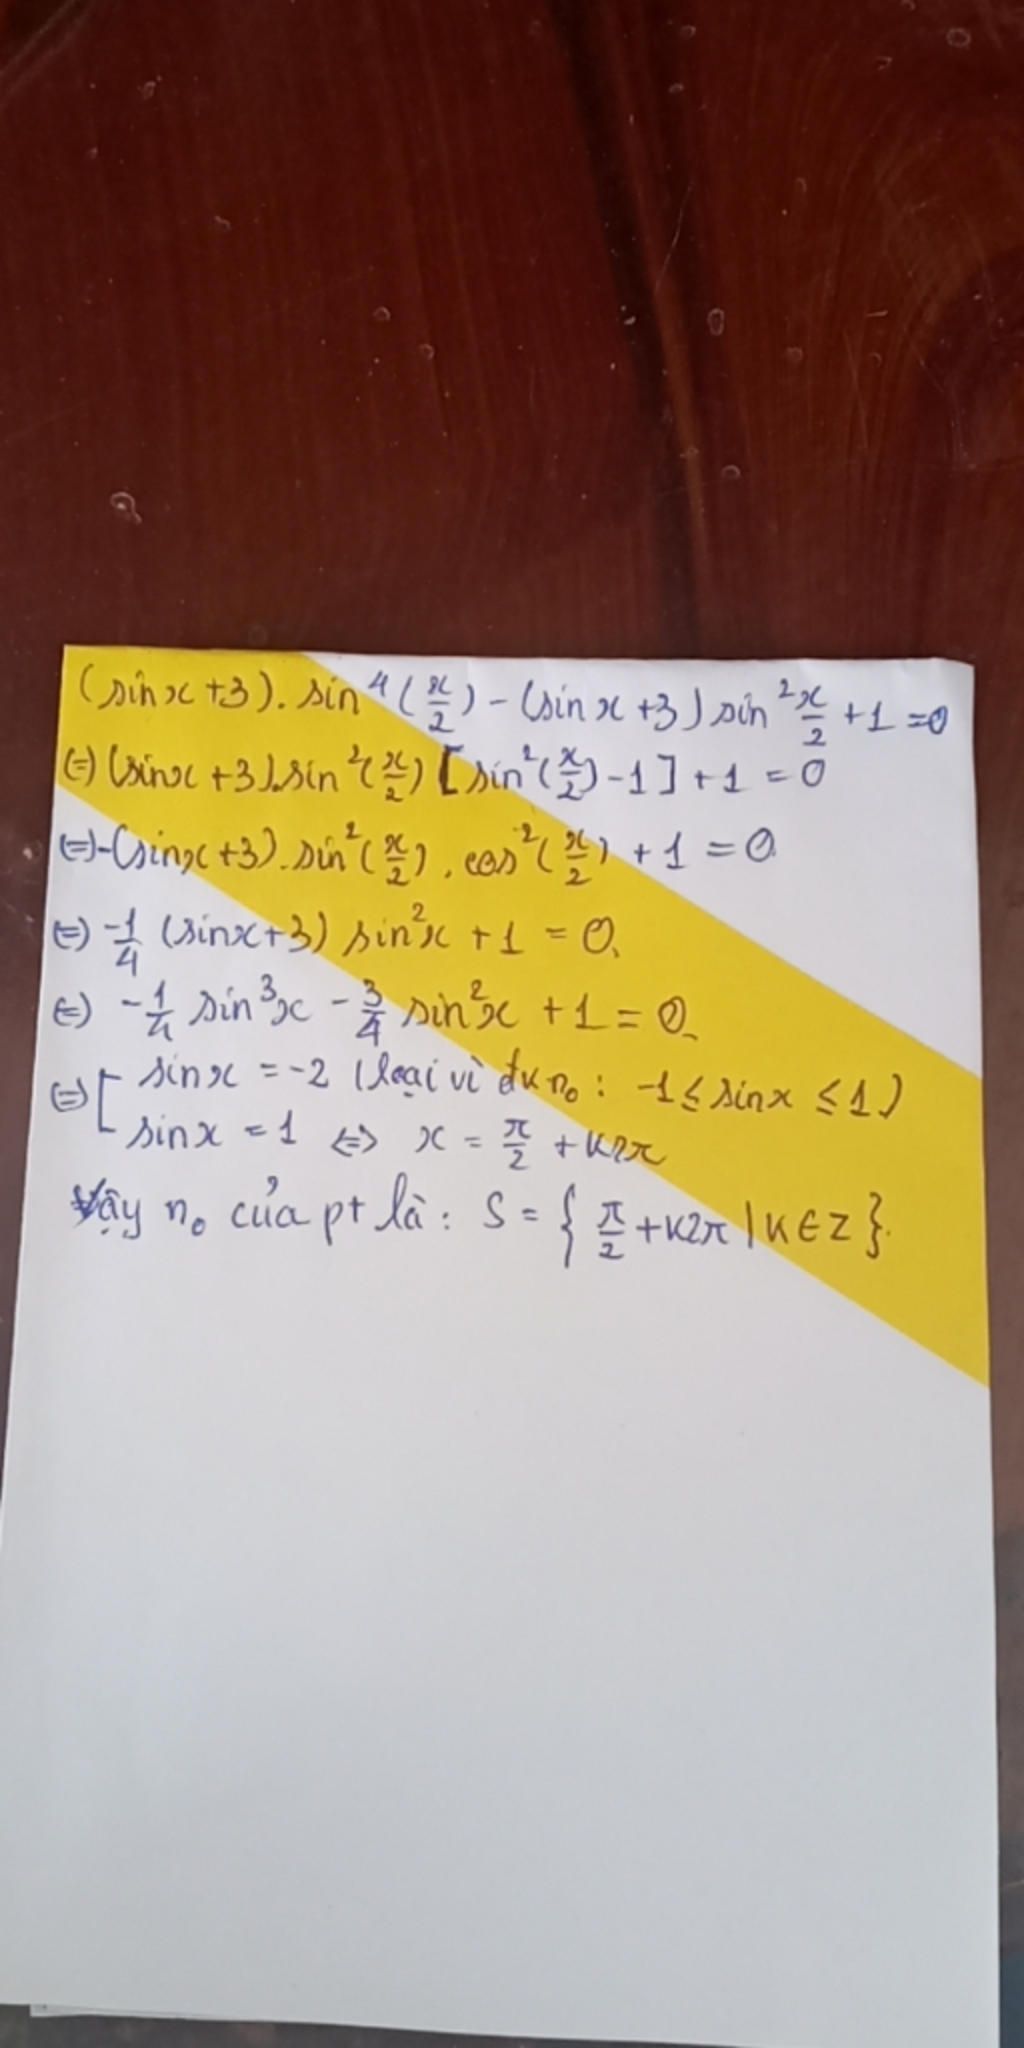 (sin x + 3). sin⁴(x/2) - (sin x + 3) sin² x/2 + 1 = 0
(=) (sin x + 3).sin²(x/2) [sin²(x/2) - 1] + 1 = 0
(=) -(sin x + 3). sin²(x/2). cos²(x/2) + 1 = 0
(=) -1/4 (sin x + 3) sin²x + 1 = 0.
(=) -1/4 sin³x - 3/4 sin²x + 1 = 0
(=) [ sin x = -2 (loại vì đk n₀ : -1 ≤ sin x ≤ 1)
sin x = 1 <=> x = π/2 + k2π
Vậy n₀ của pt là : S = { π/2 + k2π | k ∈ Z }.